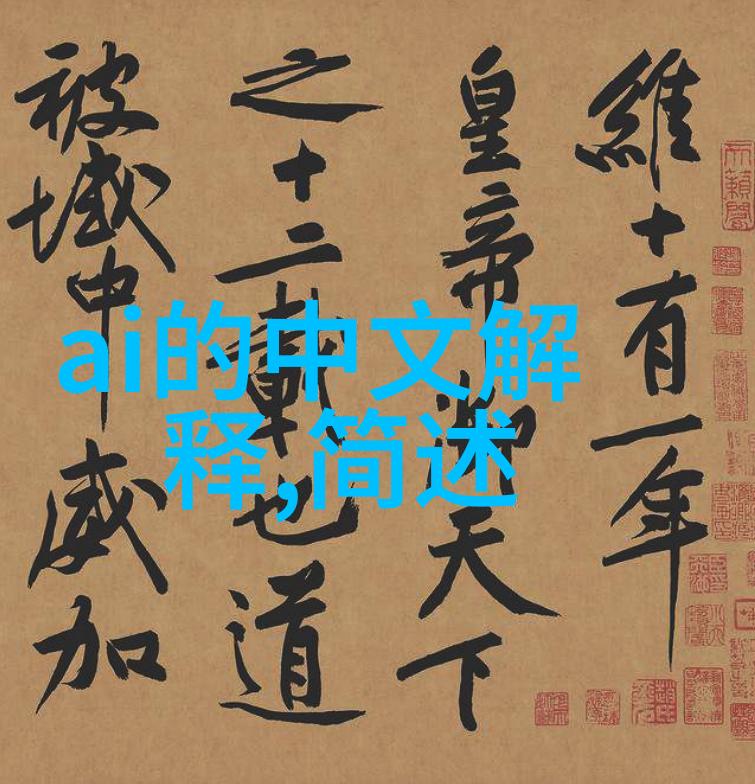 維十有一年
皇帝御天下
之十二載也道
被域中威加
ai的中文解
释,简述